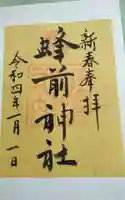 新春奉拝
蜂前神社
令和四年一月一日